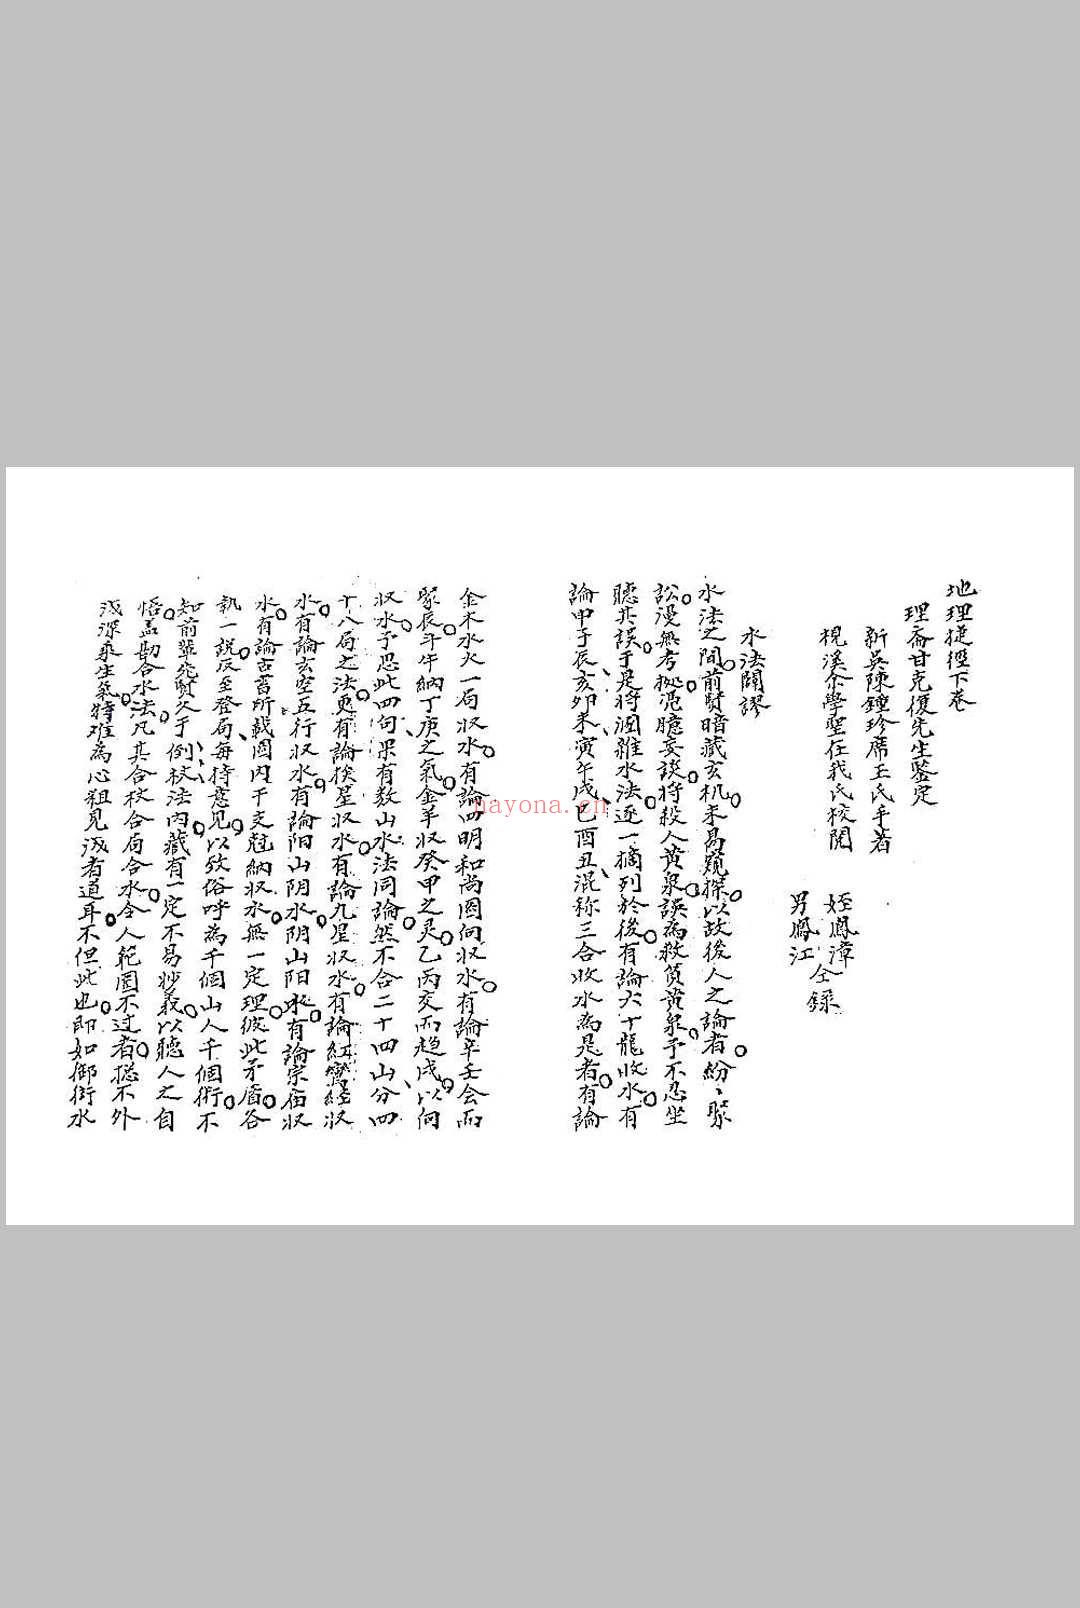 地理捷徑下卷
理斋甘克復先生鑒定
新吳陳鍾珍席玉氏手著
梘溪余學聖任我氏校閲
姪鳳漳
男鳳江
仝錄
水法闢謬
水法之間前賢暗藏玄机未易窺探以故後人之論者紛〻聚
訟漫無考㨿凴臆妄談将殺人黄泉誤為救貧黄泉予不忍坐
聽其誤于是将溷雜水法逐一摘列於後有論六十龍收水有
論申子辰亥卯未寅午戌巳酉丑混称三合收水為是者有論
金木水火一局収水有論四明和尚圖向収水有論辛壬会而
聚辰斗牛納丁庚之氣金羊収癸甲之灵乙丙交而趋戌以向
収水予思此四句果有数山水法同論然不合二十四山分四
十八局之法更有論挨星収水有論九星収水有論紅鸞経収
水有論玄空五行収水有論阳山阴水阴山阳水有論宗庙収
水有論古書所載圖内干支尅納収水無一定理彼此矛盾各
執一説反至登局每持意見以致俗呼為千個山人千個術不
知前輩先賢久于倒杖法内藏有一定不易妙義以聽人之自
悟盖勘合水法凡其合杖合局合水令人範圍不过者摠不外
浅深乘生氣特难為心粗見浅者道耳不但此也即如御街水
nayona.cn